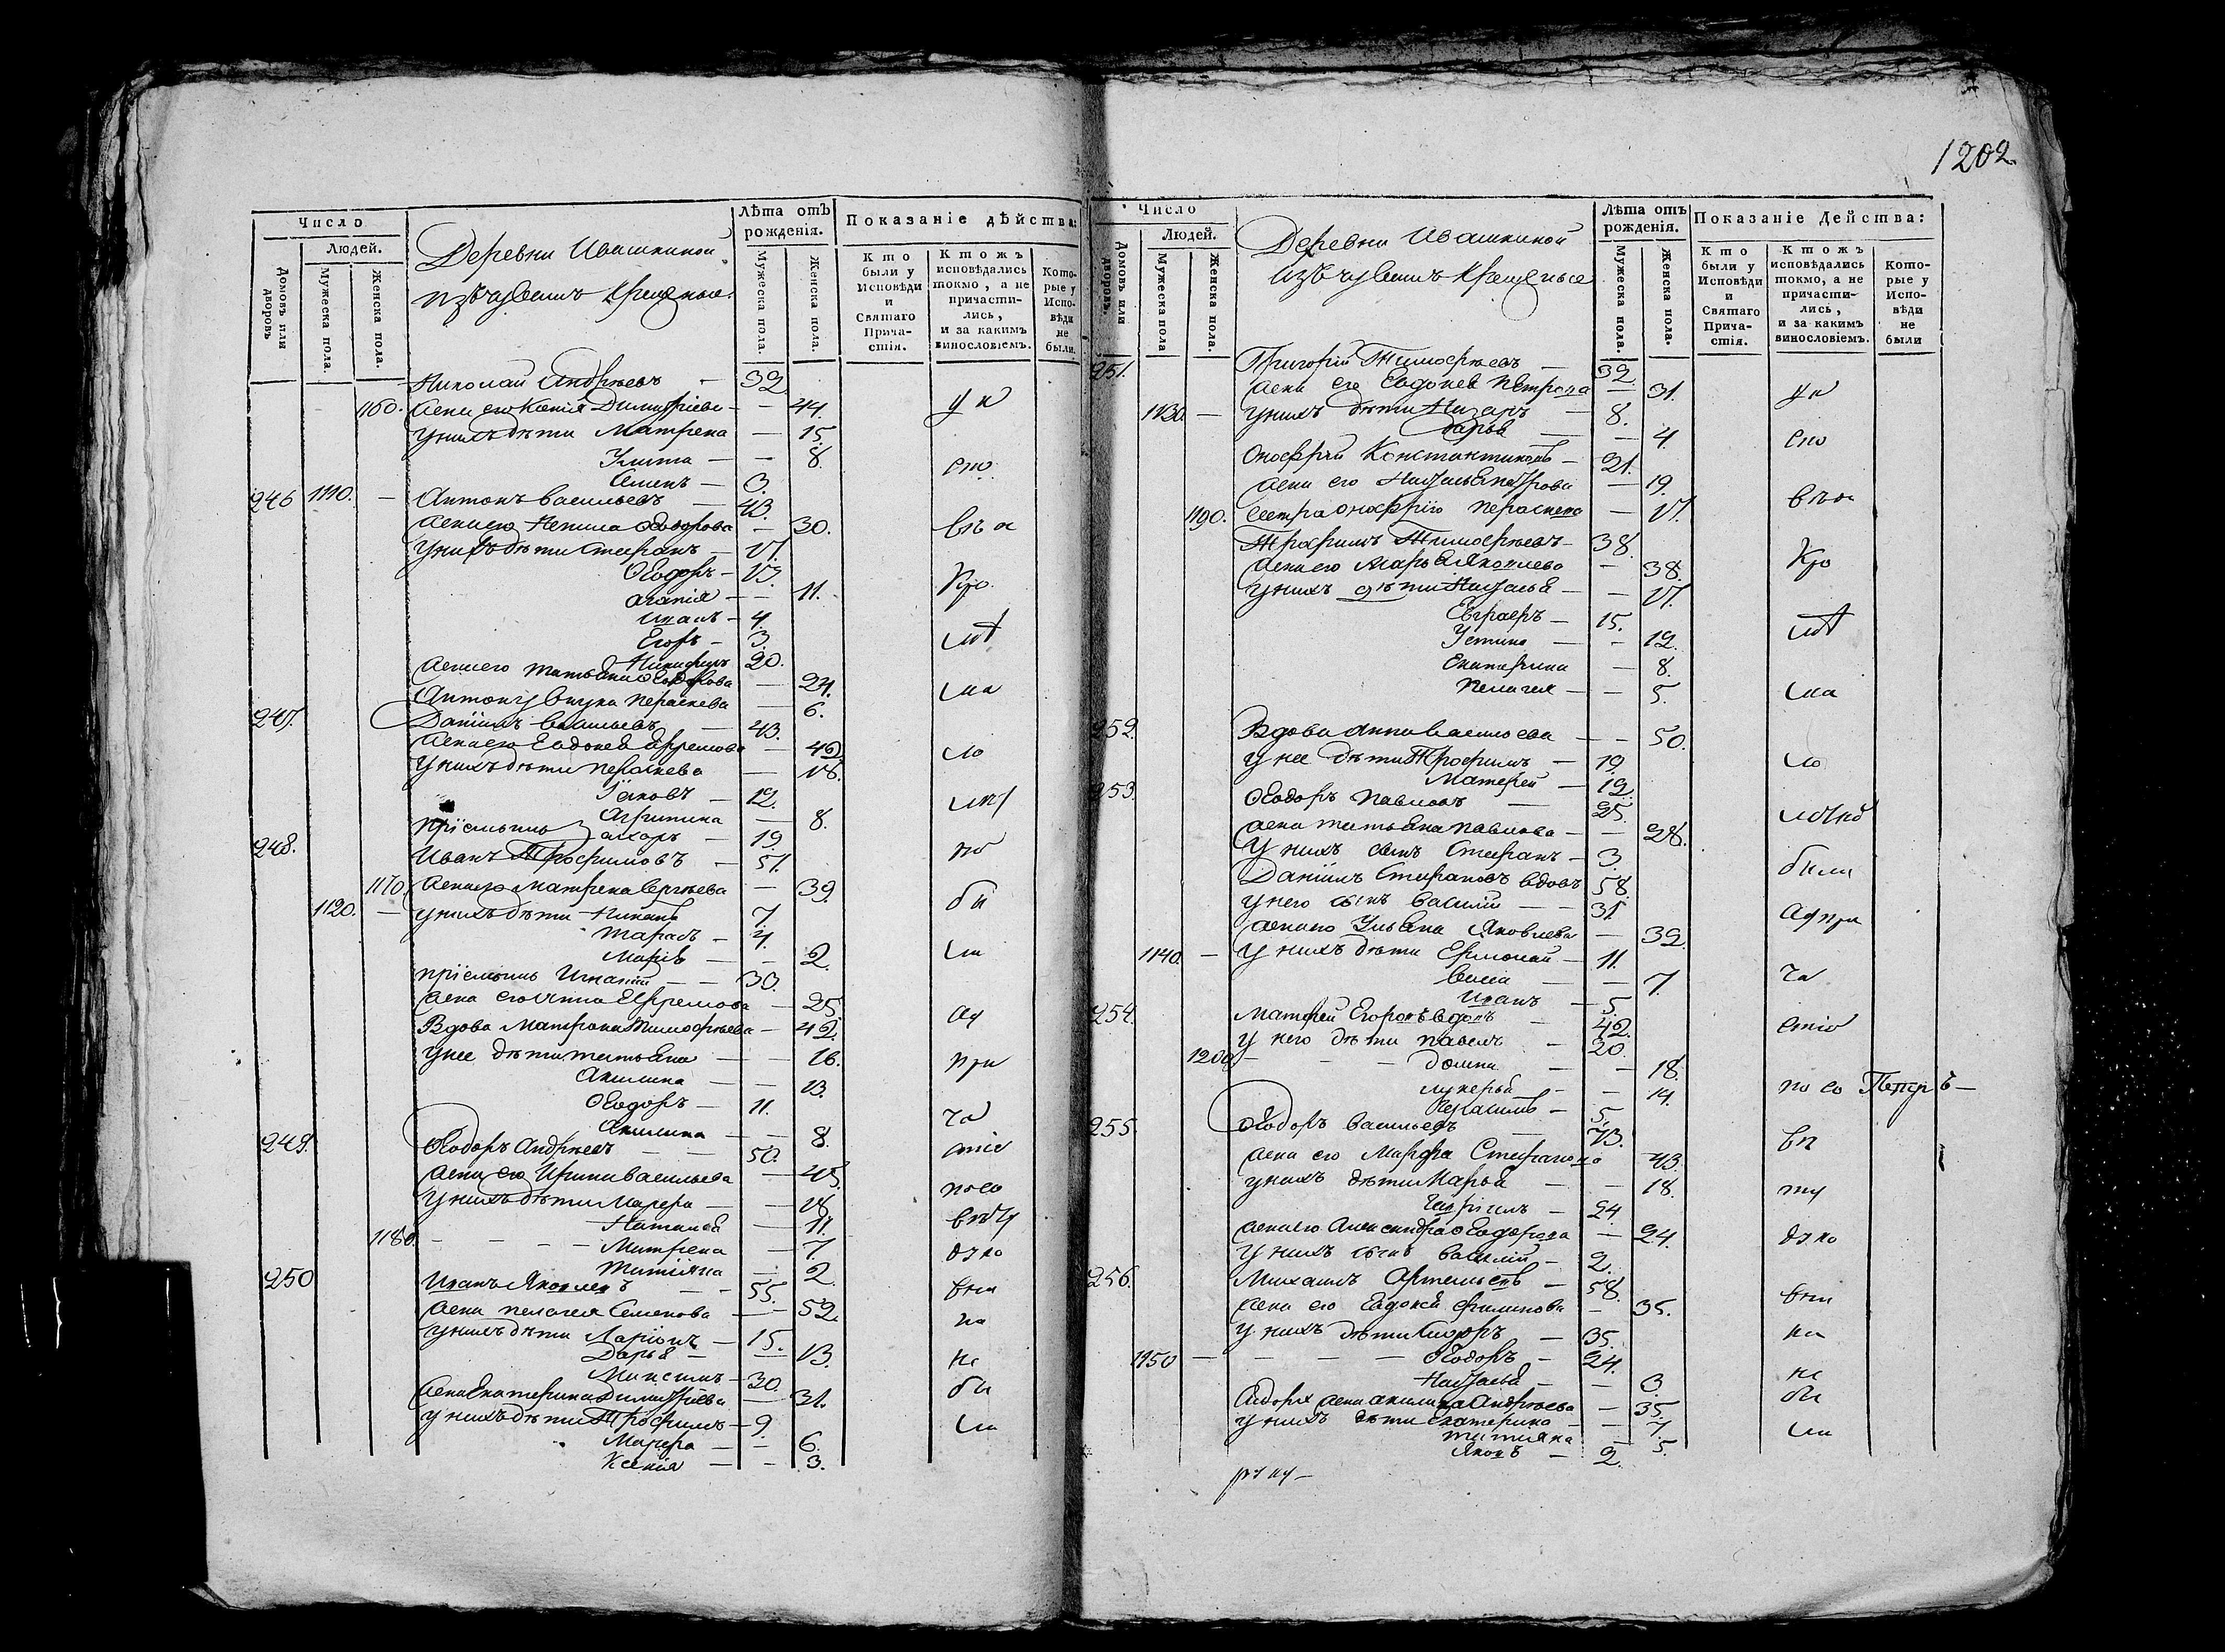 1202
Число
Людей.
Домовъ или дворовъ
Мужеска пола.
Женска пола.
Деревни Ивашкиной
изъ чувашъ крещеные
Лѣта отъ рожденія.
Мужеска пола.
Женска пола.
Показаніе дѣйства:
Кто были у Исповѣди и Святаго Прича-стія.
Ктожъ исповѣдались токмо, а не причасти-лись, и за какимъ винословіемъ.
Кото-рые у Испо-вѣди не были.
Николай Андреевъ — 32
1160. жена его Димитріева — 44.
у нихъ дѣти Матрена — 15.
Улита — 8.
Семенъ — 3.
246 1110. — Антонъ Васильевъ — 43.
жена его Ѳеодорова — 30.
у нихъ дѣти Стефанъ — 17.
Ѳеодоръ — 13.
Агапія — 11.
Иванъ — 4.
Егоръ — 3.
Никифоръ 20.
жена его Татьяна Ѳеодорова — 24.
Антону внука Параскева — 6.
247. Даніилъ Васильевъ — 43.
жена его Евдокея Ефремова — 42
у нихъ дѣти Параскева — 18.
Іяковъ — 12.
Агрипина — 8.
пріемышъ — 19.
248. Иванъ Трофимовъ — 51.
1170. жена его Матрена Сергѣева — 39.
1120. — у нихъ дѣти — 7.
Тарасъ — 4.
Марія — 2.
пріемышъ Игнатій — 30.
жена его Анна Ефремова — 25.
Вдова Матрона Тимофѣева — 42.
у нее дѣти Татьяна — 16.
Акилина — 13.
Ѳеодоръ — 11.
Акилина — 8.
249. Ѳеодоръ Андреевъ — 50.
жена его Ирина Васильева — 45.
у нихъ дѣти Марфа — 18.
Наталья — 11.
1180. — Матрена — 7.
Татіяна — 2.
250 Иванъ Яковлевъ — 55.
жена Пелагея Семенова — 52.
у нихъ дѣти Ларіонъ — 15.
Дарья — 13.
Максимъ — 30.
жена Екатерина Димитріева — 31.
у нихъ дѣти Трофимъ — 9.
Марфа — 6.
Ксенія — 3.
Число
Людей.
Домовъ или дворовъ.
Мужеска пола
Женска пола.
Деревни Ивашкиной
изъ чувашъ крещеные
Лѣта отъ рожденія.
Мужеска пола.
Женска пола.
Показаніе Действа:
Кто были у Исповѣди и Святаго Прича-стія.
Ктожъ исповѣдались токмо, а не причасти-лись, и за какимъ винословіемъ.
Кото-рые у Испо-вѣди не были
251. Григорій Тимофѣевъ — 32.
жена его Евдокея Петрова — 31.
1130. — у нихъ дѣти Назаръ — 8.
Дарья — 4.
Онофрій Константиновъ — 21.
жена его Наталья Петрова — 19.
1190. сестра Онофрію Параскева — 17.
Трофимъ Тимофѣевъ — 38.
жена его Марья Яковлева — 38.
у нихъ дѣти Наталья — 17.
Евграфъ — 15.
Устина — 12.
Екатерина — 8.
Пелагея — 5.
252. Вдова Анна Васильева — 50.
у нее дѣти Трофимъ — 19.
Матфей — 12.
253. Ѳеодоръ Павловъ — 25.
жена Татьяна Павлова — 28.
У нихъ сынъ Стефанъ — 3.
Даніилъ Стефановъ вдовъ 58.
у него сынъ Василій — 31
жена его Ульяна Яковлева — 32.
1140. — у нихъ дѣти Ермолай — 11.
Васса — 7.
Иванъ — 5.
254. Матфей Егоровъ вдовъ — 42.
у него дѣти Павелъ — 20.
1200. — Домна — 18.
Лукерья — 14.
Герасимъ — 5.
255. Ѳеодоръ Васильевъ — 43.
жена его Марфа Стефанова 43.
у нихъ дѣти Марья — 18.
Гавріилъ — 24.
жена его Александра Ѳеодорова — 24.
У нихъ сынъ Василій — 2.
256. Михаилъ Артемьевъ — 58.
жена его Евдокея Филипова — 35.
у нихъ дѣти Сидоръ — 35.
1150 — Ѳеодоръ — 24.
Наталья — 3.
Сидора жена Акилина Андреева — 35.
у нихъ дѣти Екатерина — 7.
Татияна — 5.
Яковъ — 2.